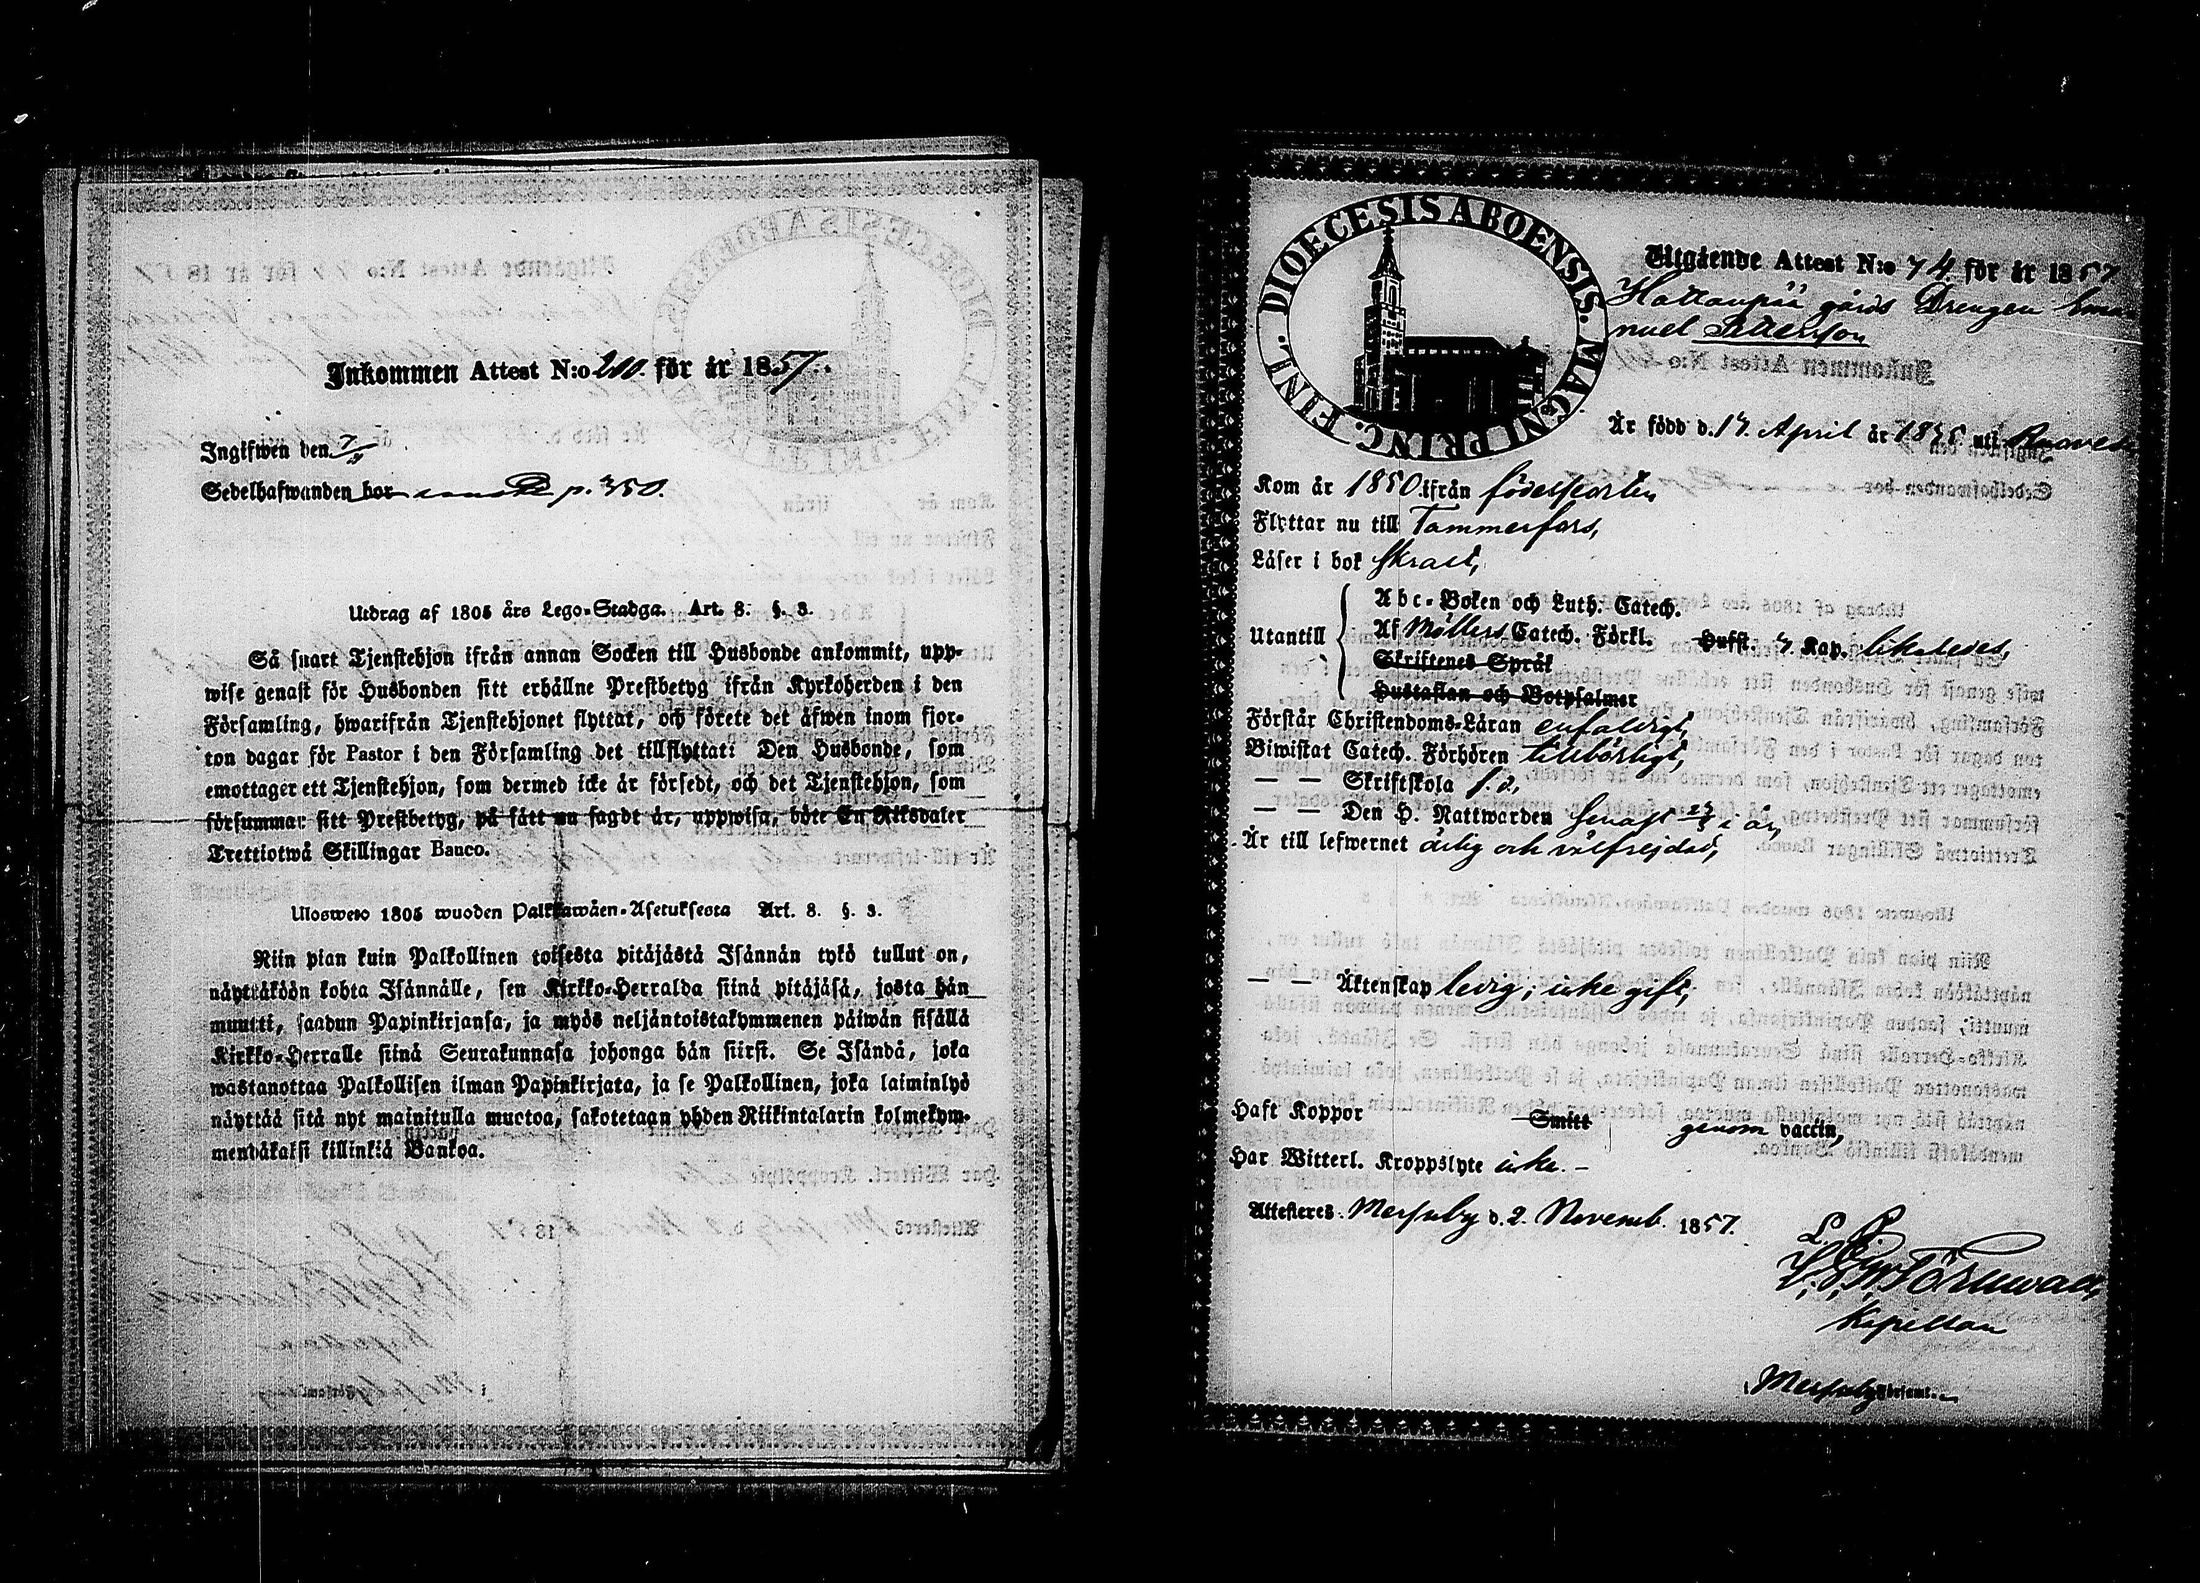 Inkommen Attest N:o 200 för år 1857.
Ingifwen den 7/11
Sedelhafwanden bor p. 350.
Utdrag af 1805 års Lego-Stadga. Art. 8. §. 3.
Så snart Tjenstehjon ifrån annan Socken till Husbonde ankommit, upp-
wise genast för Husbonden sitt erhållne Prestbetyg ifrån Kyrkoherden i den
Församling, hwarifrån Tjenstehjonet flyttat, och förete det äfwen inom fjor-
ton dagar för Pastor i den Församling det tillflyttat: Den Husbonde, som
emottager ett Tjenstehjon, som dermed icke är försedt, och det Tjenstehjon, som
försummar sitt Prestbetyg, på sätt nu sagdt är, uppwisa, böte En Riksdaler
Trettiotwå Skillingar Banco.
Ulosweto 1805 wuoden Palkkawäen-Asetuksesta Art. 8. §. 3.
Niin pian kuin Palkollinen toisesta pitäjästä Isännän tykö tullut on,
näyttäköön kohta Isännälle, sen Kirkko-Herralda siinä pitäjäsä, josta hän
muutti, saadun Papinkirjansa, ja myös neljäntoistakymmenen päiwän sisällä
Kirkko-Herralle siinä Seurakunnasa johonga hän siirsi. Se Isändä, joka
wastanottaa Palkollisen ilman Papinkirjata, ja se Palkollinen, joka laiminlyö
näyttää sitä nyt mainitulla muotoa, sakotetaan yhden Riikintalarin kolmekym-
mendäkaksi killinkiä Bankoa.
DIOECESIS ABOENSIS. MAGNI PRINC. FINL.
Utgående Attest N:o 74 för år 1857
Hattanpää gårds Drengen Ema-
nuel
Är född d. 17. April år 1835 uti Ruoves
Kom år 1850 ifrån födelseorten
Flyttar nu till Tammerfors,
Läser i bok skralt,
Utantill
Abc-Boken och Luth. Catech.
Af Möllers Catech. Förkl. Hufst. 7. Kap. likaledes,
Skriftenes Språk
Hustaflan och Botpsalmer
Förstår Christendoms-Läran enfaldigt,
Biwistat Catech. Förhören tillbörligt,
— — Skriftskola f. d.,
— — Den H. Nattwarden senast i år,
Är till lefwernet ärlig och välfrejdad,
— — Äktenskap ledig, icke gift,
Haft Koppor Smitt genom vaccin,
Har Witterl. Kroppslyte icke. –
Attesteres Messuby d. 2. Novemb. 1857.
Törnwall,
Kapellan
i Messuby Församl.